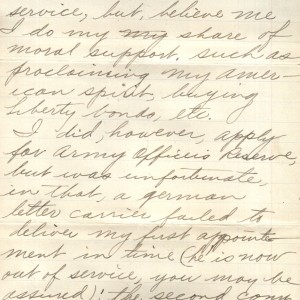 service, but, believe me
I do my my share of
moral support, such as
proclaiming my amer-
ican spirit, buying
liberty bonds, etc.
I did, however, apply
for Army Officers Reserve,
but was unfortunate,
in that, a german
letter carrier failed to
deliver my first appoint-
ment in time (he is now
out of service, you may be
assured); the second com-